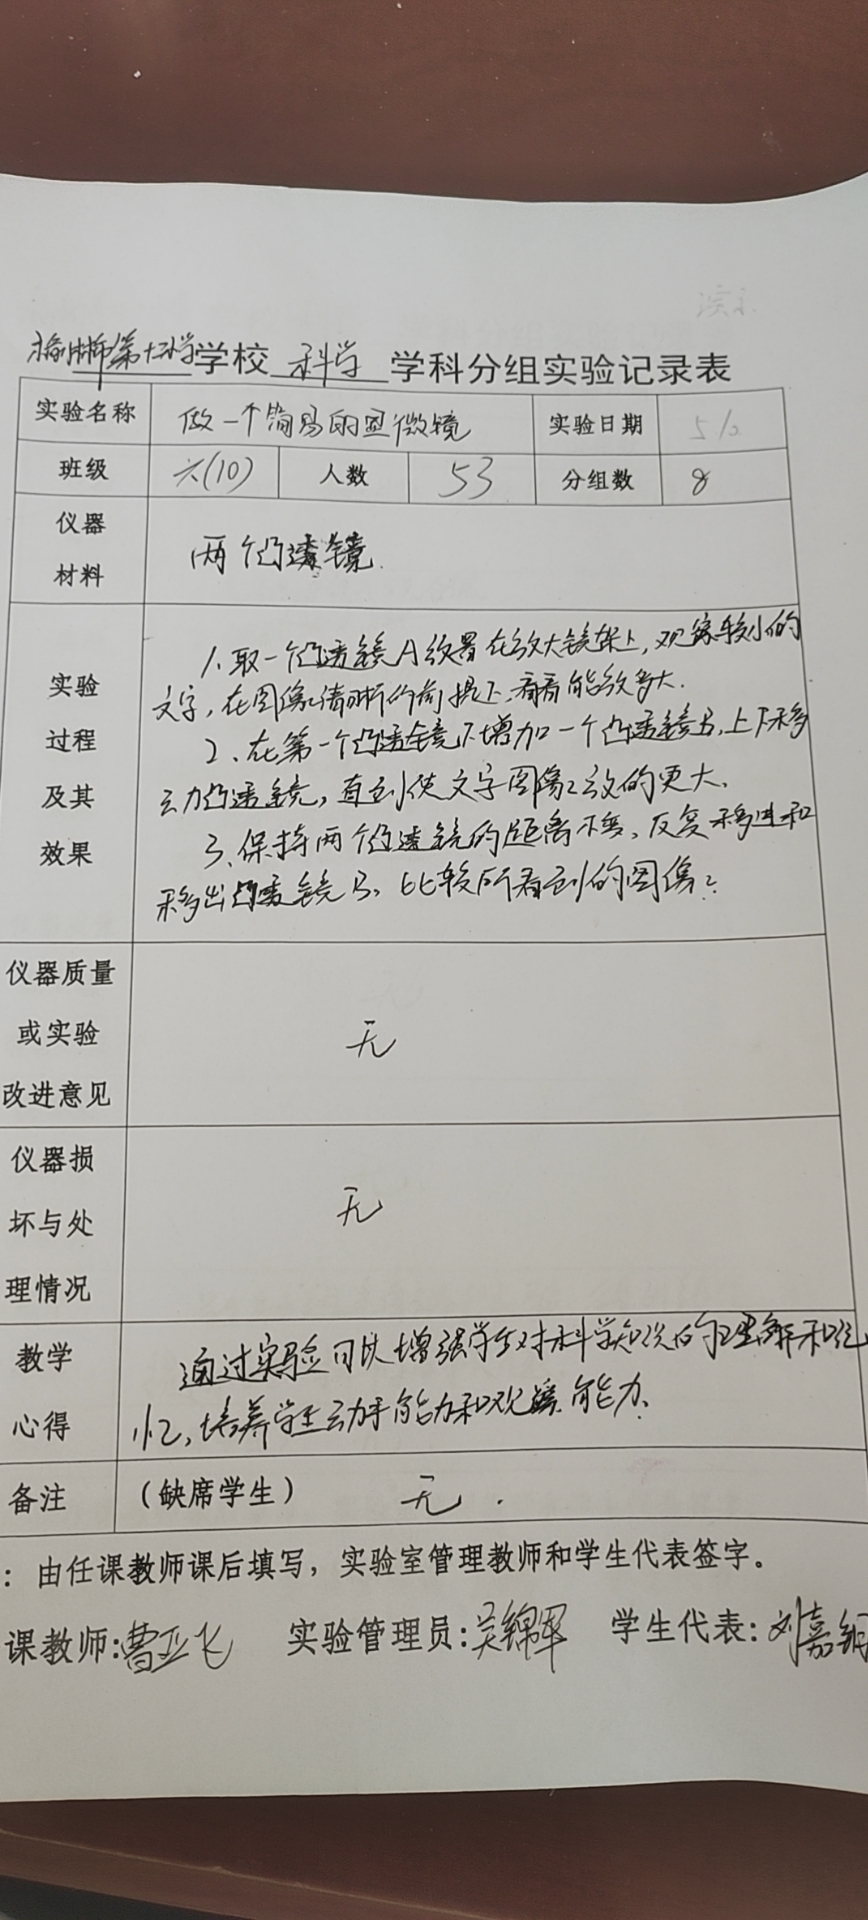 演示
榆林市第十二小学学校 科学 学科分组实验记录表
实验名称 做一个简易的显微镜 实验日期 5/
班级 六(10) 人数 53 分组数 8
仪器
材料
两个凸透镜.
实验
过程
及其
效果
1.取一个凸透镜A放置在放大镜架上,观察较小的
文字,在图像清晰的前提下,看看能放多大.
2、在第一个凸透镜下增加一个凸透镜B,上下移
动凸透镜,直到使文字图像放的更大.
3、保持两个凸透镜的距离不变,反复移进和
移出凸透镜B,比较所看到的图像?
仪器质量
或实验
改进意见
无
仪器损
坏与处
理情况
无
教学
心得
通过实验可以增强学生对科学知识的理解和记
忆,培养学生动手能力和观察能力.
备注 (缺席学生) 无.
:由任课教师课后填写,实验室管理教师和学生代表签字。
课教师:曹亚飞 实验管理员:吴锦军 学生代表:刘嘉